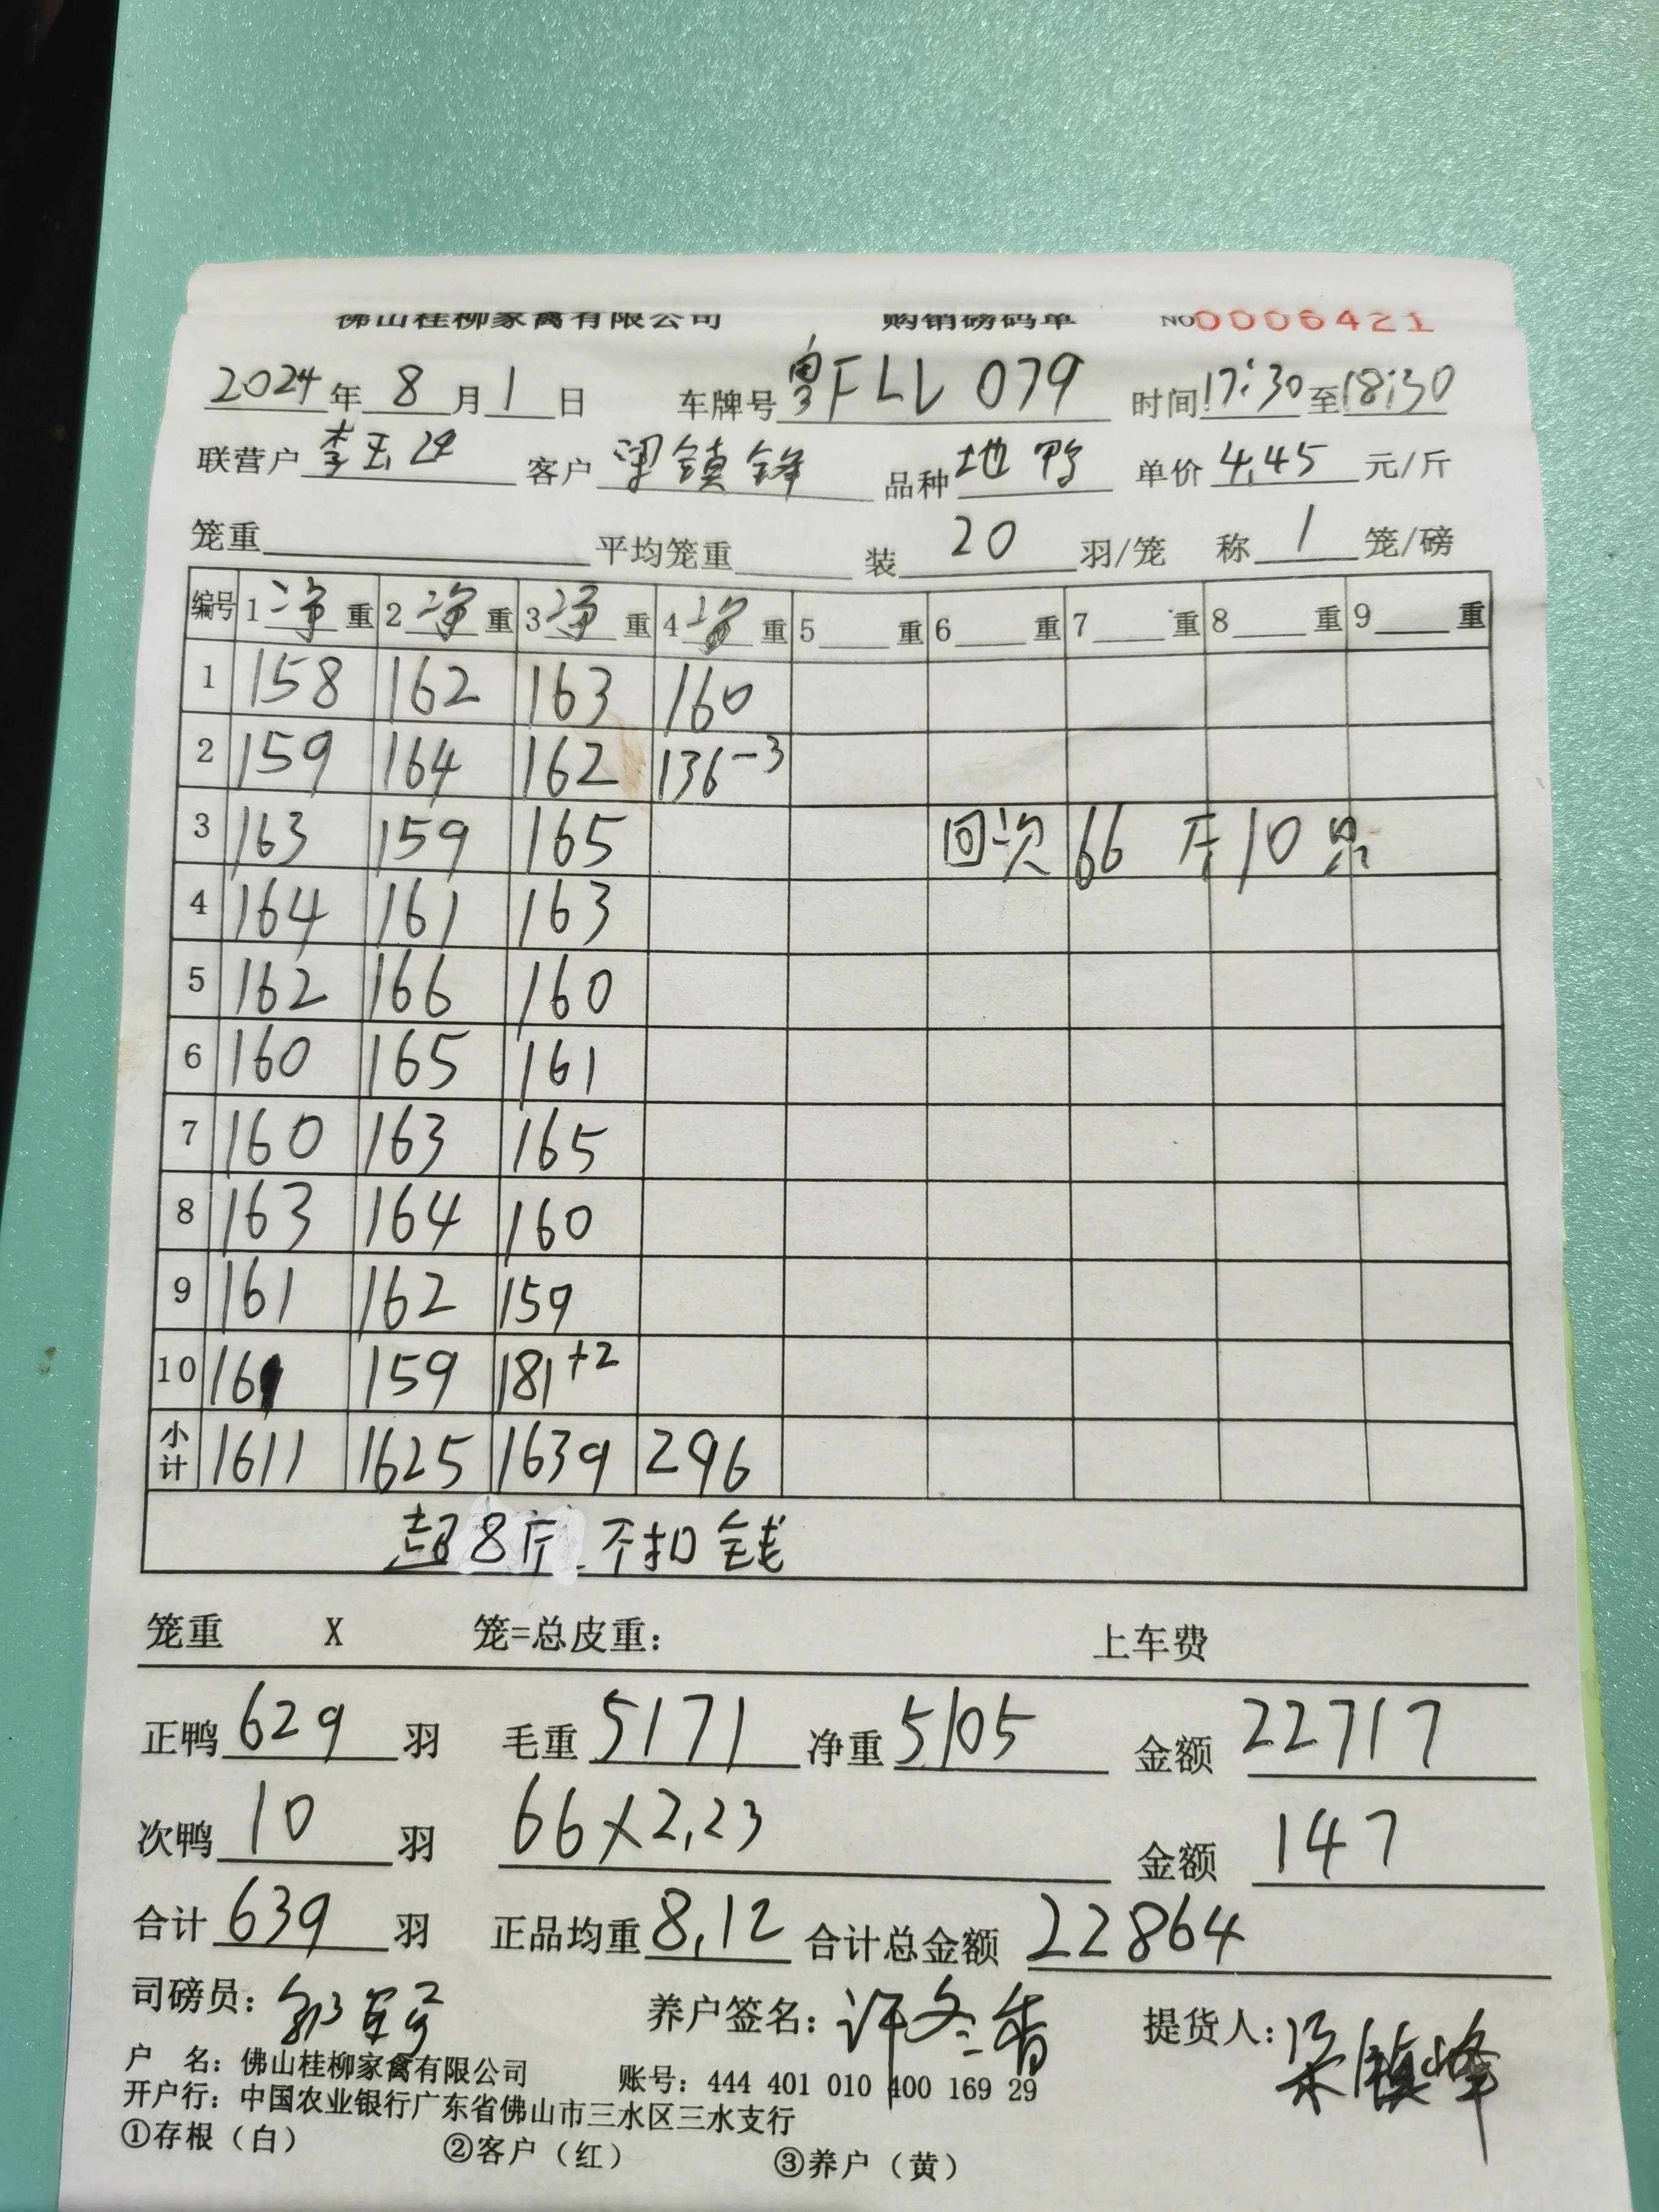 佛山桂柳家禽有限公司 购销磅码单 NO0006421
2024年8月1日 车牌号粤FLL079 时间17:30至18:30
联营户李玉 客户梁镇锋 品种地鸭 单价4.45元/斤
笼重 平均笼重 装20羽/笼 称1笼/磅
编号 1净重 2净重 3净重 4净重 5重 6重 7重 8重 9重
1 158 162 163 160
2 159 164 162 136-3
3 163 159 165 回次66斤10只
4 164 161 163
5 162 166 160
6 160 165 161
7 160 163 165
8 163 164 160
9 161 162 159
10 161 159 181+2
小计 1611 1625 1639 296
超8斤不扣钱
笼重 X 笼=总皮重: 上车费
正鸭629羽 毛重5171 净重5105 金额22717
次鸭10羽 66×2.23 金额147
合计639羽 正品均重8.12 合计总金额22864
司磅员: 养户签名:许冬香 提货人:梁镇峰
户 名:佛山桂柳家禽有限公司 账号:444 401 010 400 169 29
开户行:中国农业银行广东省佛山市三水区三水支行
①存根(白) ②客户(红) ③养户(黄)